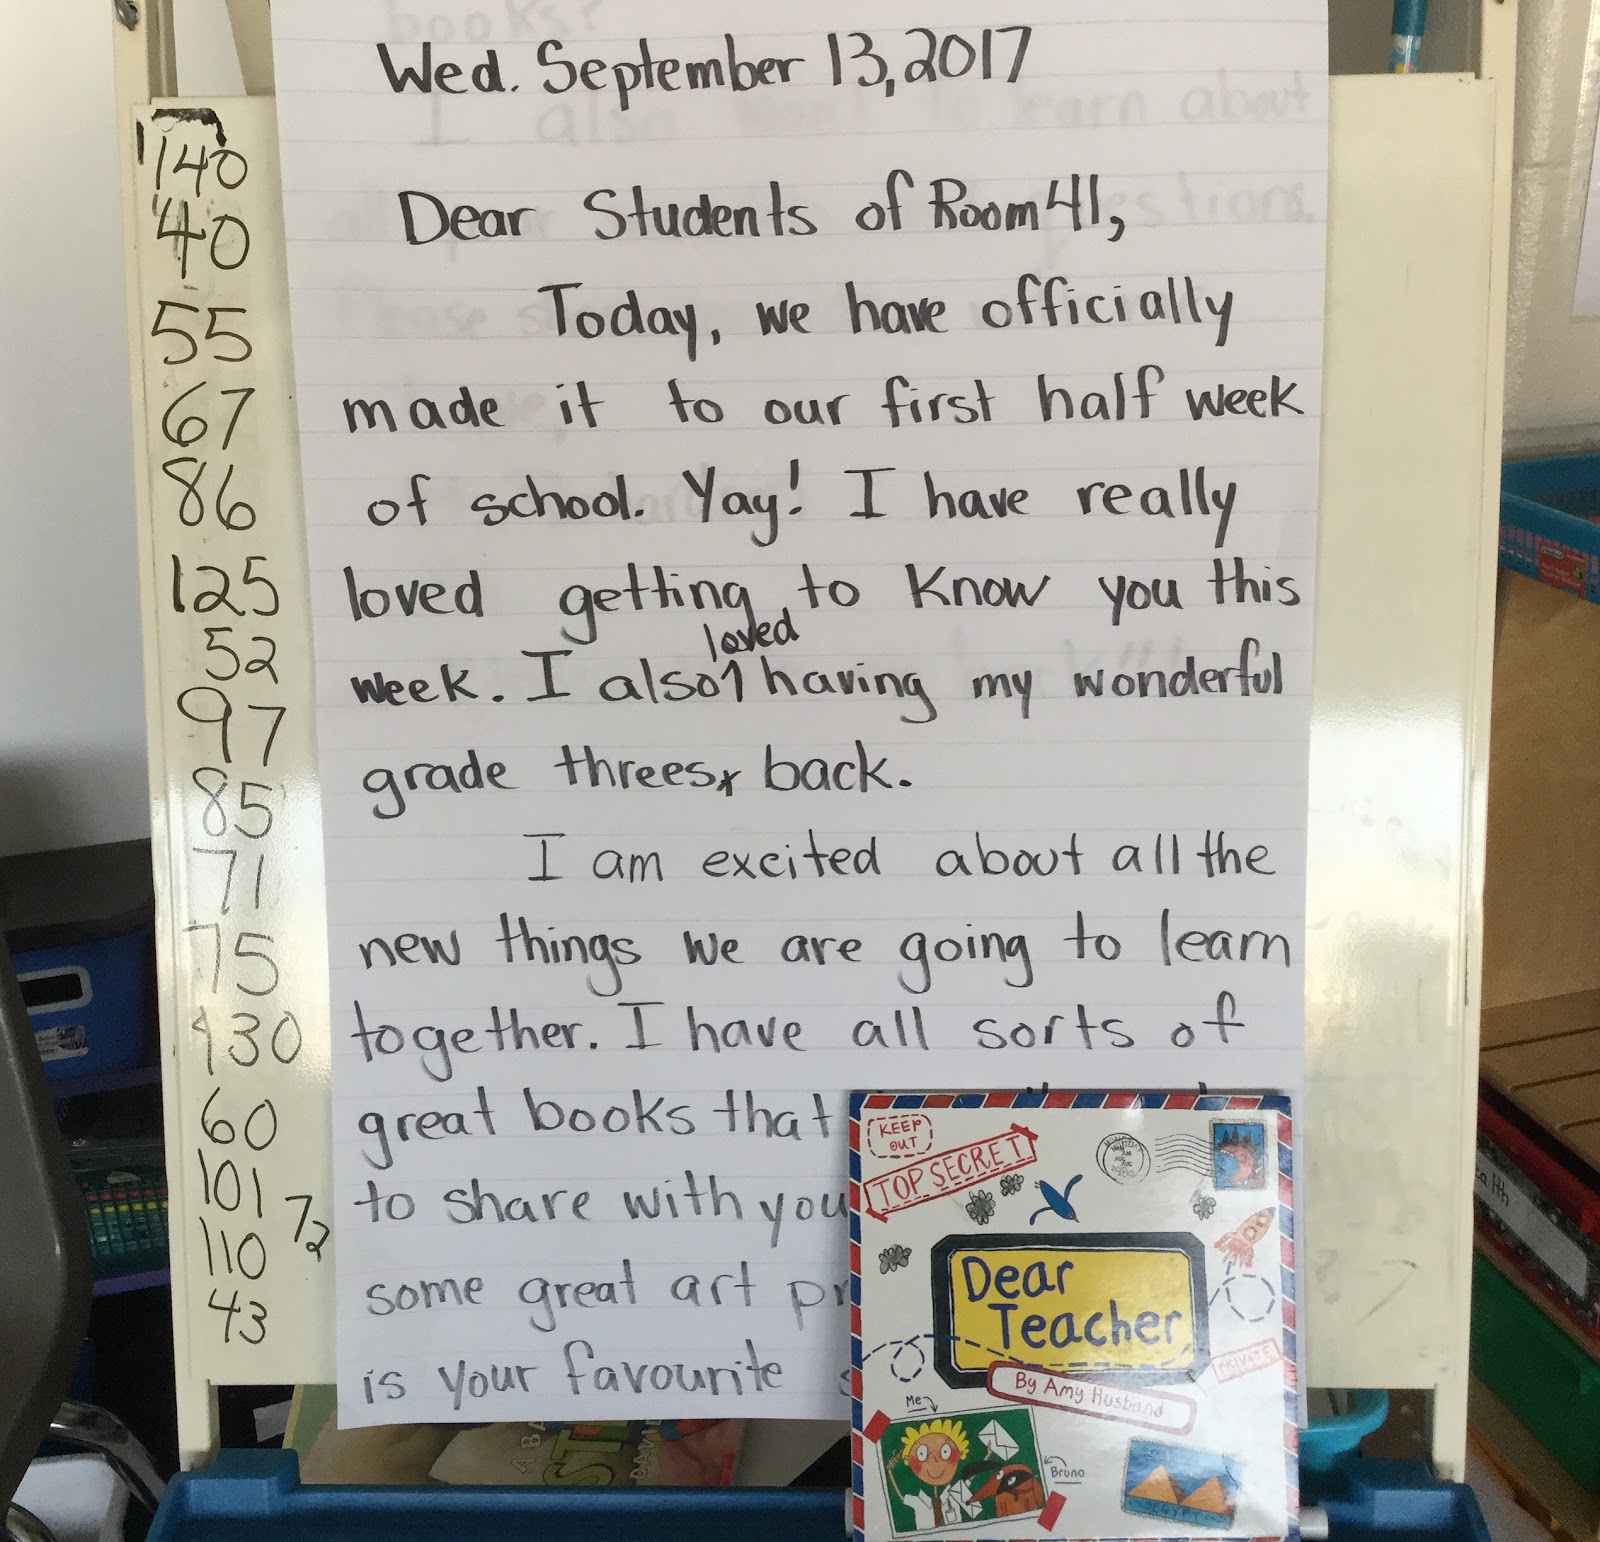 Wed. September 13, 2017
Dear Students of Room 41,
Today, we have officially
made it to our first half week
of school. Yay! I have really
loved getting to know you this
loved
week. I also having my wonderful
grade threes, back.
I am excited about all the
new things we are going to learn
together. I have all sorts of
great books that
to share with you
some great art pr
is your favourite
140
40
55
67
86
125
52
97
85
71
75
130
60
101
72
110
43
KEEP
OUT
TOP SECRET
Dear
Teacher
PRIVATE
By Amy Husband
Me
Bruno
EGYPT